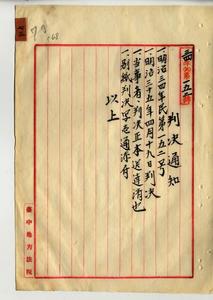 判決通知
一、明治三四年民第一五二号
一、明治三十五年四月十九日判決
一、当事者ヘ判決正本送達済也
一、別紙判決写壱通添付
以上
臺中地方法院